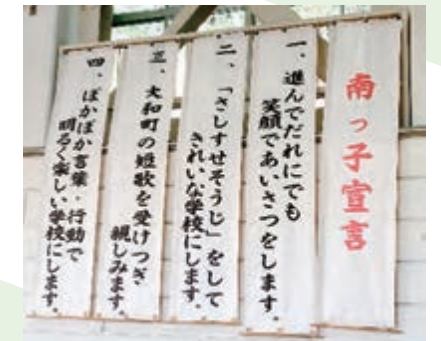 南っ子宣言
一、進んでだれにでも
笑顔であいさつをします。
二、「さしすせそうじ」をして
きれいな学校にします。
三、大和町の短歌を受けつぎ
親しみます。
四、ぽかぽか言葉・行動で
明るく楽しい学校にします。